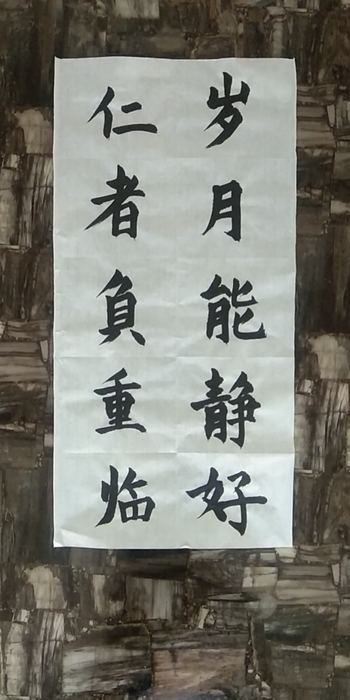 岁月能静好
仁者負重临